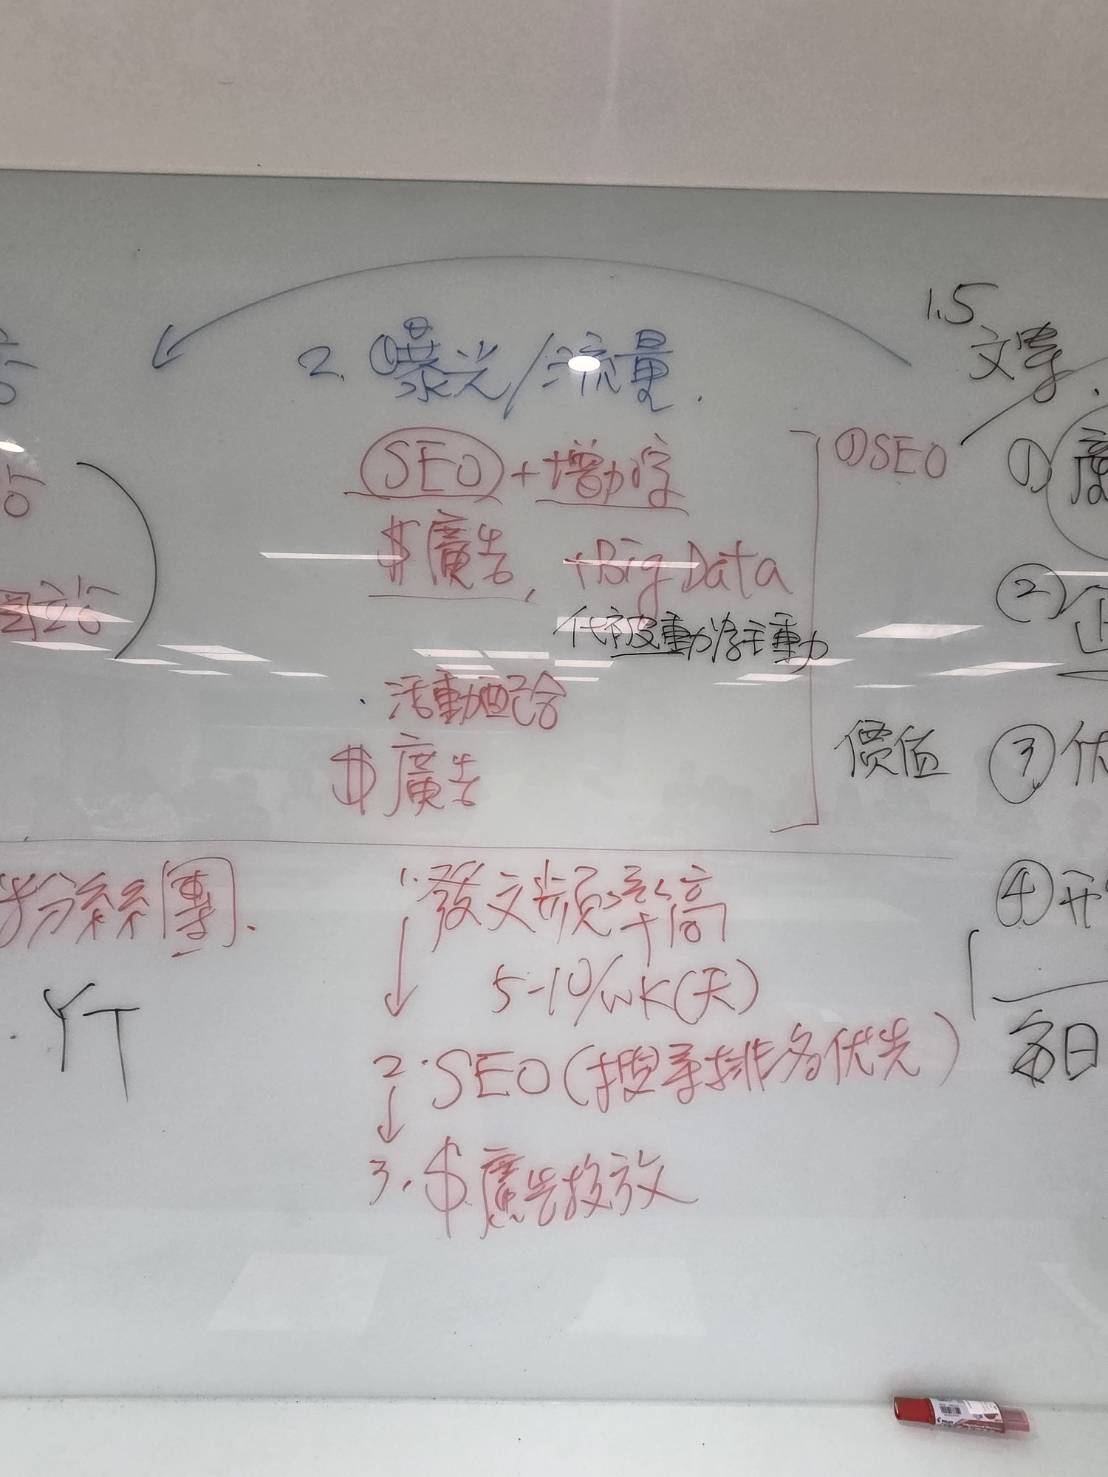 2. 曝光/流量.
SEO + 增加字
$廣告, +Big Data
代被動為主動
· 活動配合
$廣告
①SEO
1.5
文章.
①
②
價值
③
④
每日
粉絲團.
· YT
1. 發文頻率高
5-10/wk(天)
2. SEO(搜尋排名優先)
3. $廣告投放